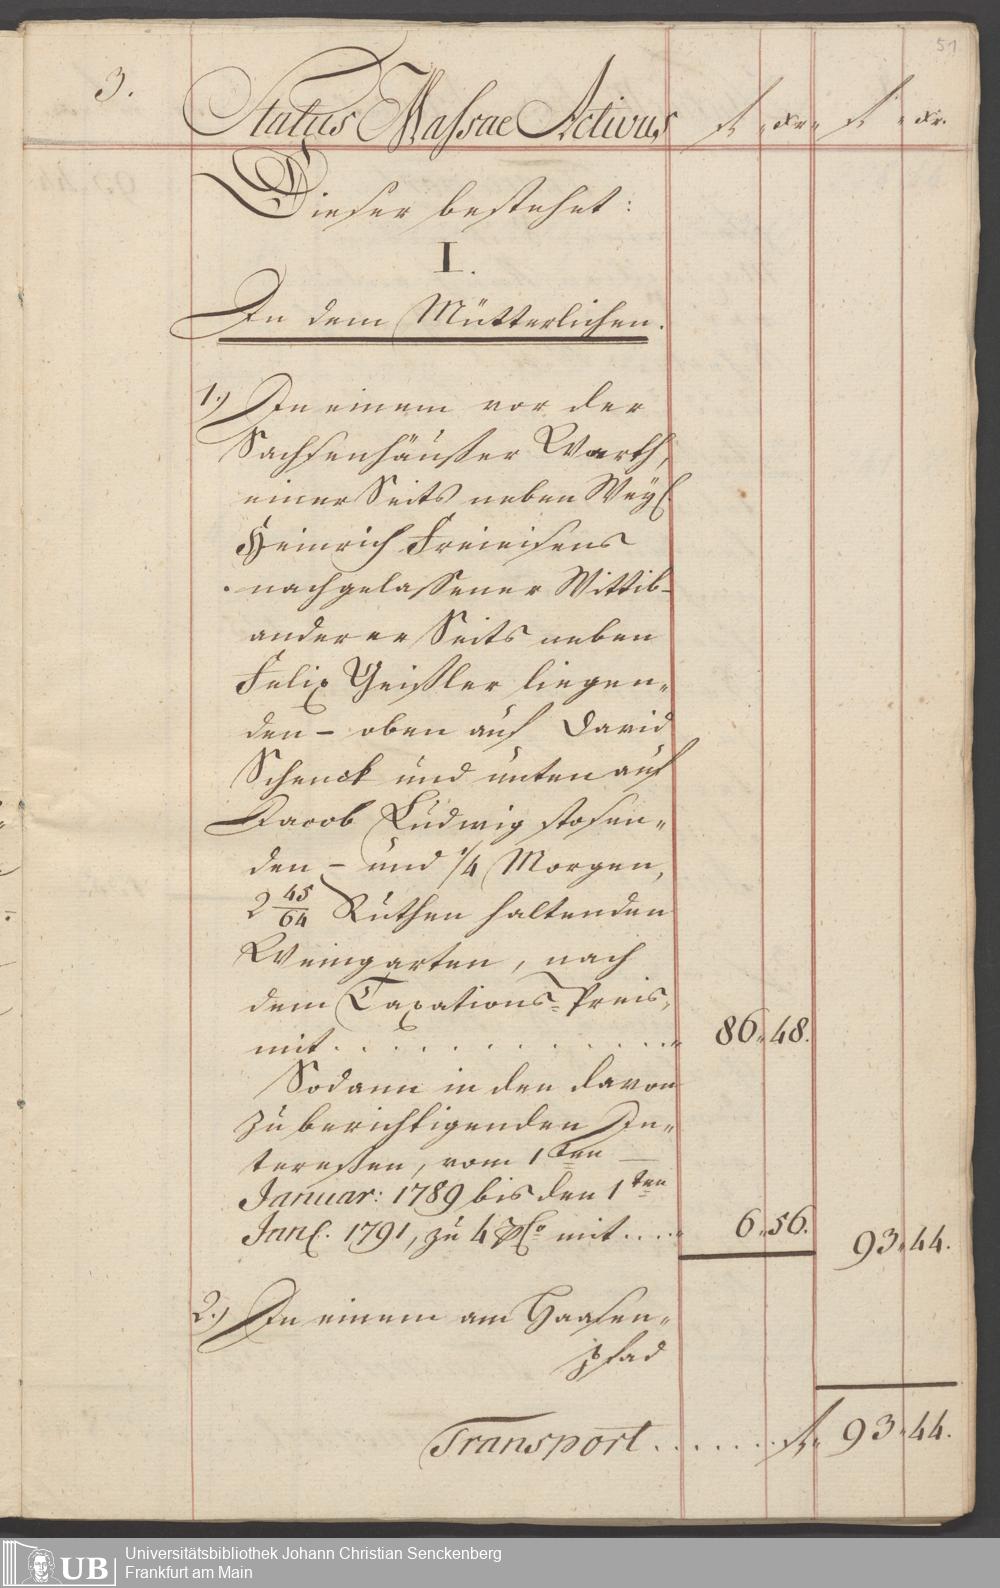 51
3.
Status Massae Activus fl. xr. fl. xr.
Dieser bestehet:
I.
In dem Mütterlichen.
1.) In einem vor der
Sachsenhäußer Warth,
einer Seits neben Weyl.
Heinrich Freieisens
nachgelassener Wittib-
anderer Seits neben
Felix Geißler liegen-
den - oben auf David
Schenck und unten auf
Jacob Ludwig stosen-
den - und 1/4 Morgen,
2 45/64 Ruthen haltenden
Weingarten, nach
dem Taxations-Preis,
mit . . . . . . . . . . . 86. 48.
Sodann in den davon
zu berichtigenden In-
tereßen, vom 1ten
Januar: 1789 bis den 1ten
Janl. 1791, zu 4 pCo mit . . . . 6. 56. 93. 44.
2.) In einem am Haasen-
pfad
Transport . . . . . . . fl. 93. 44.
UB Universitätsbibliothek Johann Christian Senckenberg
Frankfurt am Main